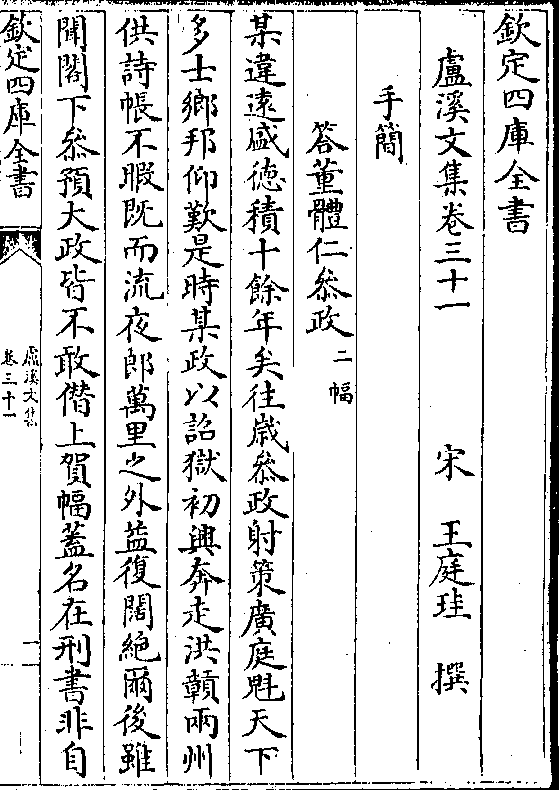 欽定四庫全書
盧溪文集卷三十一
宋 王庭珪 撰
手簡
答董體仁叅政二幅
某違遠盛德積十餘年矣往歳叅政射策廣庭魁天下
多士鄉邦仰歎是時某政以詔獄初興奔走洪贑兩州
供詩帳不暇既而流夜郎萬里之外益復闊絶爾後雖
聞閣下叅預大政皆不敢僭上賀幅蓋名在刑書非自
欽定四庫全書
盧溪文集
卷三十一
一